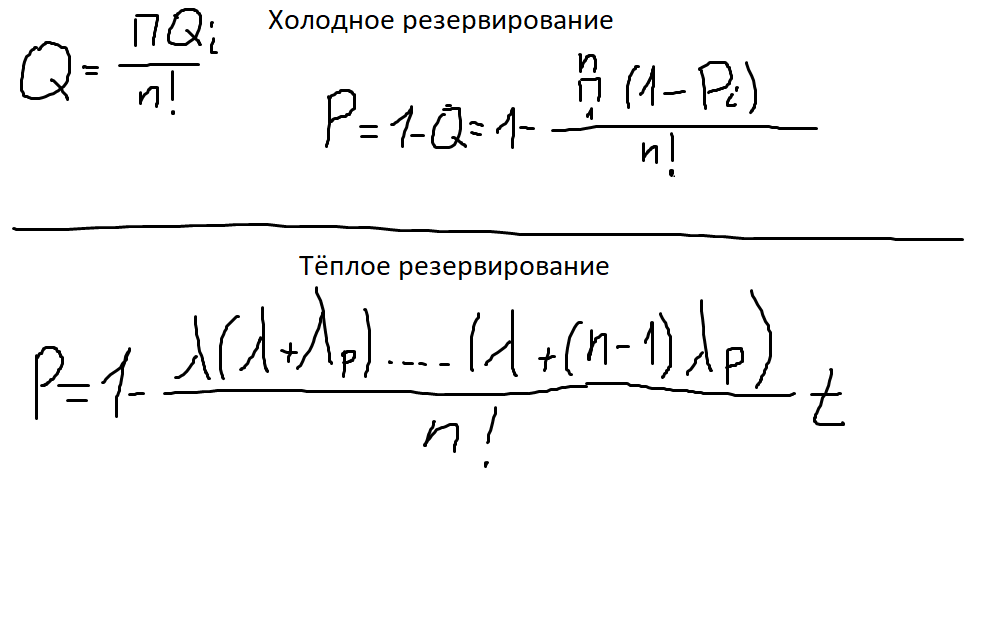 Холодное резервирование
Q = ПQi / n!
P = 1 - Q = 1 - n П 1 (1 - Pi) / n!
Тёплое резервирование
P = 1 - λ(λ + λp) .... (λ + (n - 1) λp) / n! t